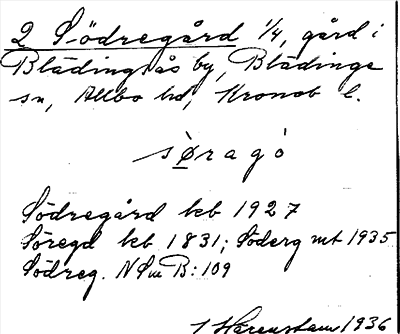 2 Södregård 1/4, gård i
Blädingsås by, Blädinge
sn, Allbo hd, Kronob l.
sǿragó
Södregård kb 1927
Söregd kb 1831; Söderg mt 1935
Södreg. NSm B:109
1936